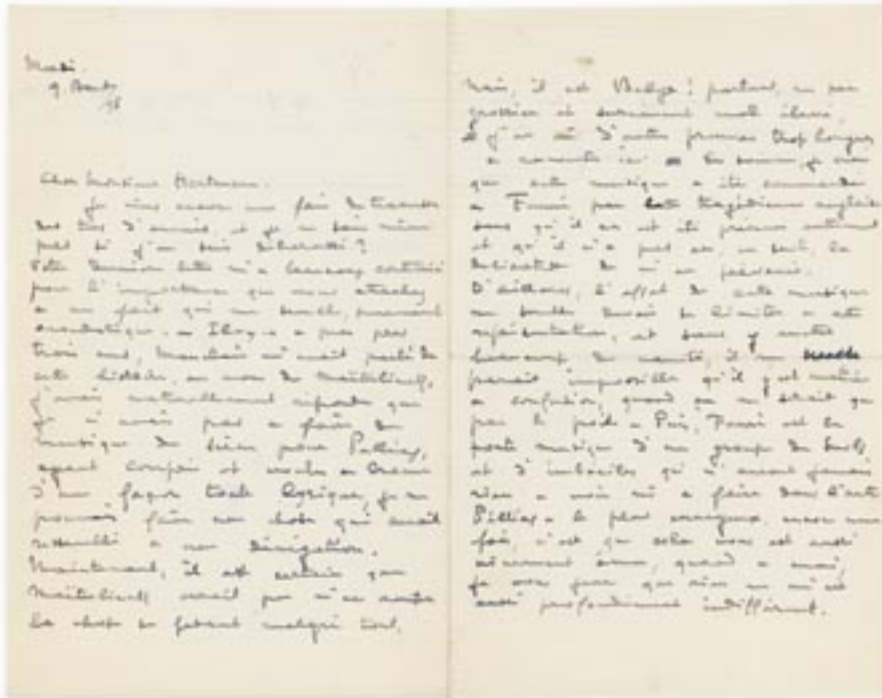 9 Août
98
Cher Monsieur Hartmann.
Je viens encore une fois de traverser
des tas d'ennuis, et je ne sais même
pas si j'en suis débarrassé?
Votre dernière lettre m'a beaucoup contrarié
par l'importance que vous attachez
à un fait qui me semble, purement
anecdotique. – Il y a à peu près
trois ans, Mauclair m'avait parlé de
cette histoire, au nom de Maëterlinck,
j'avais naturellement répondu que
je n'avais pas à faire de
musique de scène pour Pelléas,
ayant compris et voulu
d'une façon toute lyrique, je ne
pouvais faire une chose qui aurait
ressemblé à une dénégation.
Maintenant, il est certain que
Maëterlinck aurait pu
la chose se faisant malgré tout,
Mais, il est Belge! partant, un peu
grossier et sûrement mal élevé.
j'en ai d'autres preuves trop longues
à raconter ici. En somme, je crois
que cette musique a été commandée
à Fauré par cette tragédienne anglaise
sans qu'il en ait été prévenu autrement
et qu'il n'a pas eu, en suite, la
délicatesse de m'en prévenir.
D'ailleurs, l'effet de cette musique
me semble devoir se limiter à cette
représentation, et sans y mettre
beaucoup de vanité, il me
paraît impossible qu'il y ait matière
à confusion, quand ça ne serait que
par le poids. Puis, Fauré est le
porte musique d'un groupe de snobs
et d'imbéciles qui n'auront jamais
rien à voir ni à faire dans l'autre
Pelléas. Le plus ennuyeux, encore une
fois, c'est que cela vous ait aussi
vivement ému, quand à moi,
je vous jure que rien ne m'est
aussi profondément indifférent.